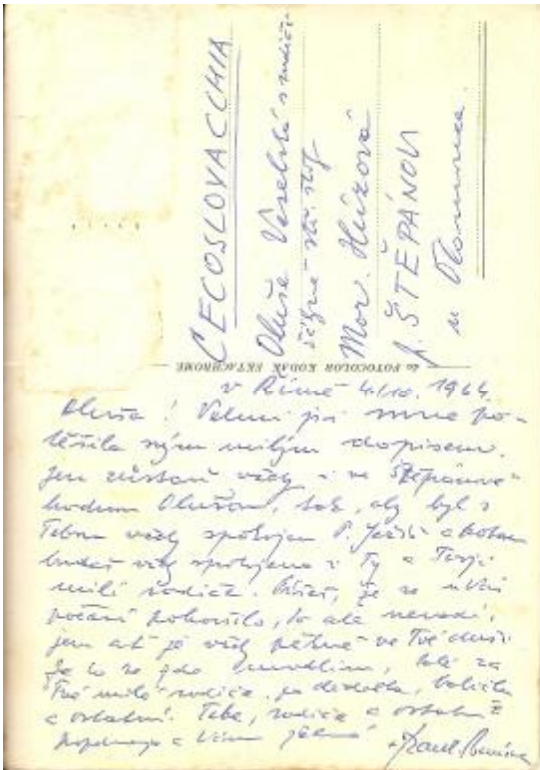 CECOSLOVACCHIA
Oluše Veselská
Mor. Huzová
p. ŠTĚPÁNOV
u Olomouce.
da FOTOCOLOR KODAK EKTACHROME
v Římě 4./10. 1964.
Oluša! Velmi jsi mne po-
těšila svým milým dopisem.
Jen zůstaň vždy i ve Štěpánově
hodnou Olušou, tak, aby byl s
Tebou vždy spokojen P. Ježíš a potom
budeš vždy spokojena i Ty a Tvoji
milí rodiče. Píšeš, že se u Vás
počasí pohoršilo, to ale nevadí,
jen ať je vždy pěkně ve Tvé duši.
Za to se zde modlím, také za
Tvé milé rodiče, dědečka, babičku
a ostatní. Tebe, rodiče a ostatní
a Vám